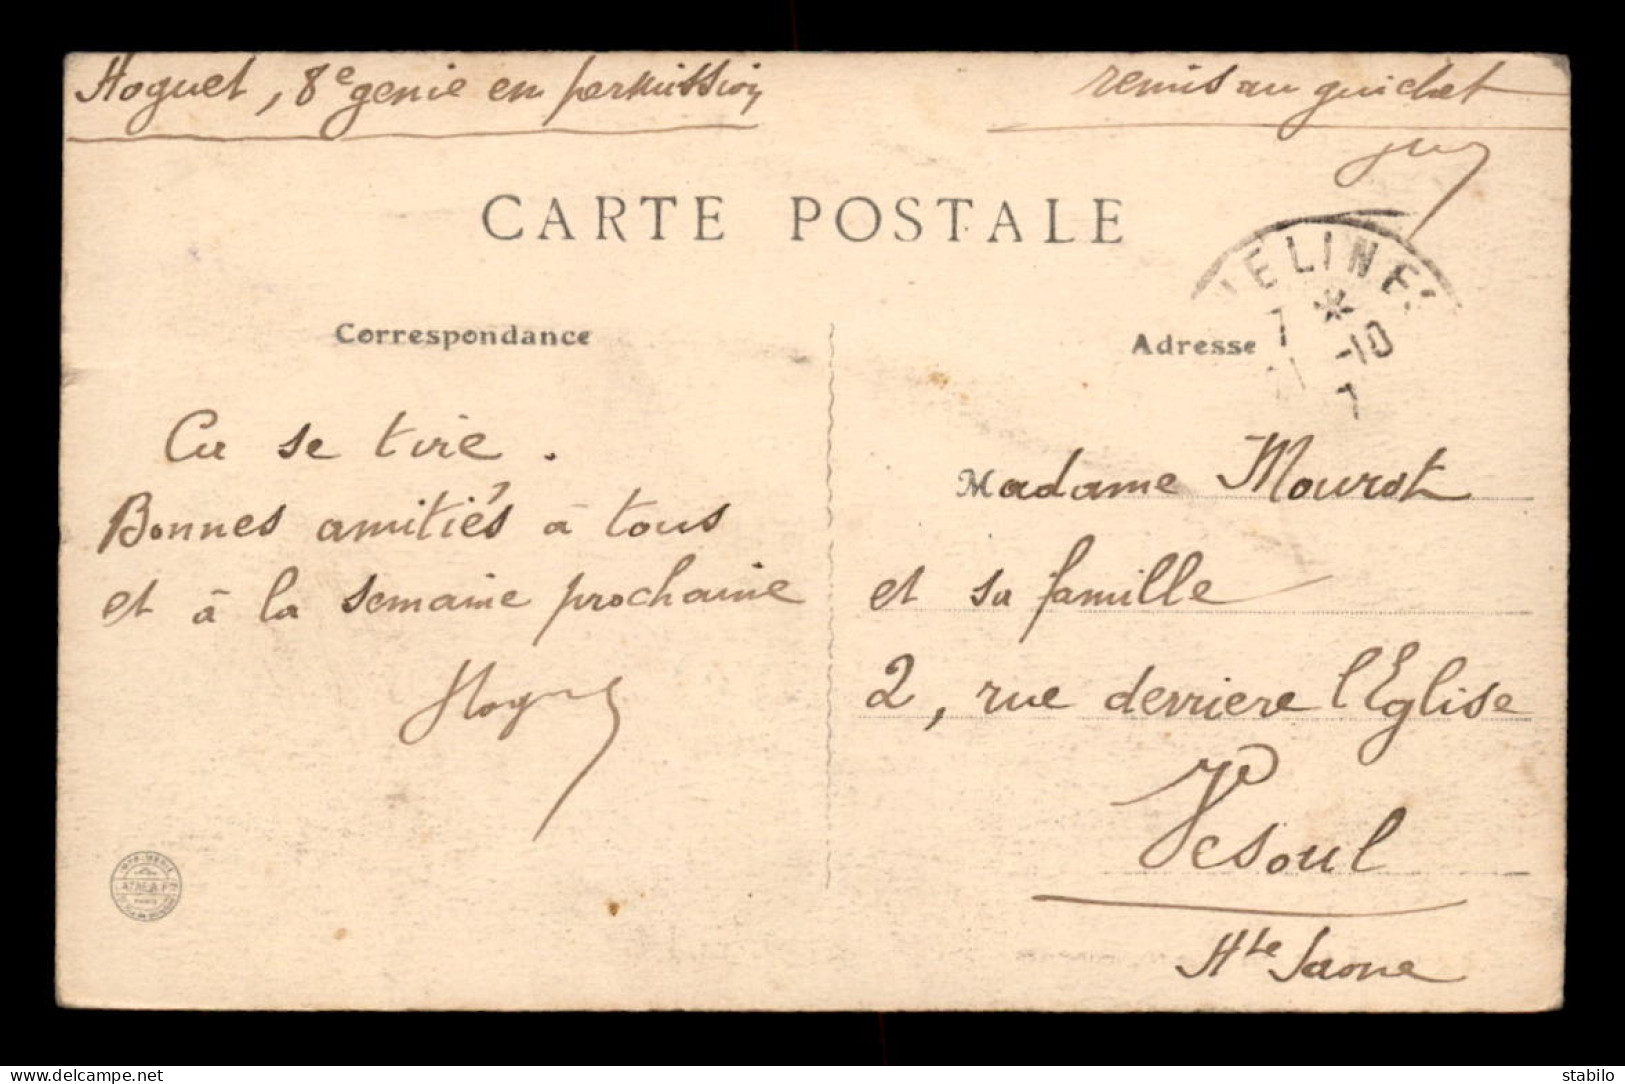 Hoguet, 8e genie en permission
remis au guichet
CARTE POSTALE
VELINES
7 * -10
7
Correspondance
Adresse
Ca se tire.
Bonnes amitiés à tous
et à la semaine prochaine
Hoguet
Madame Mourot
et sa famille
2, rue derriere l'Eglise
Vesoul
Hte Saone
www.delcampe.net
stabilo